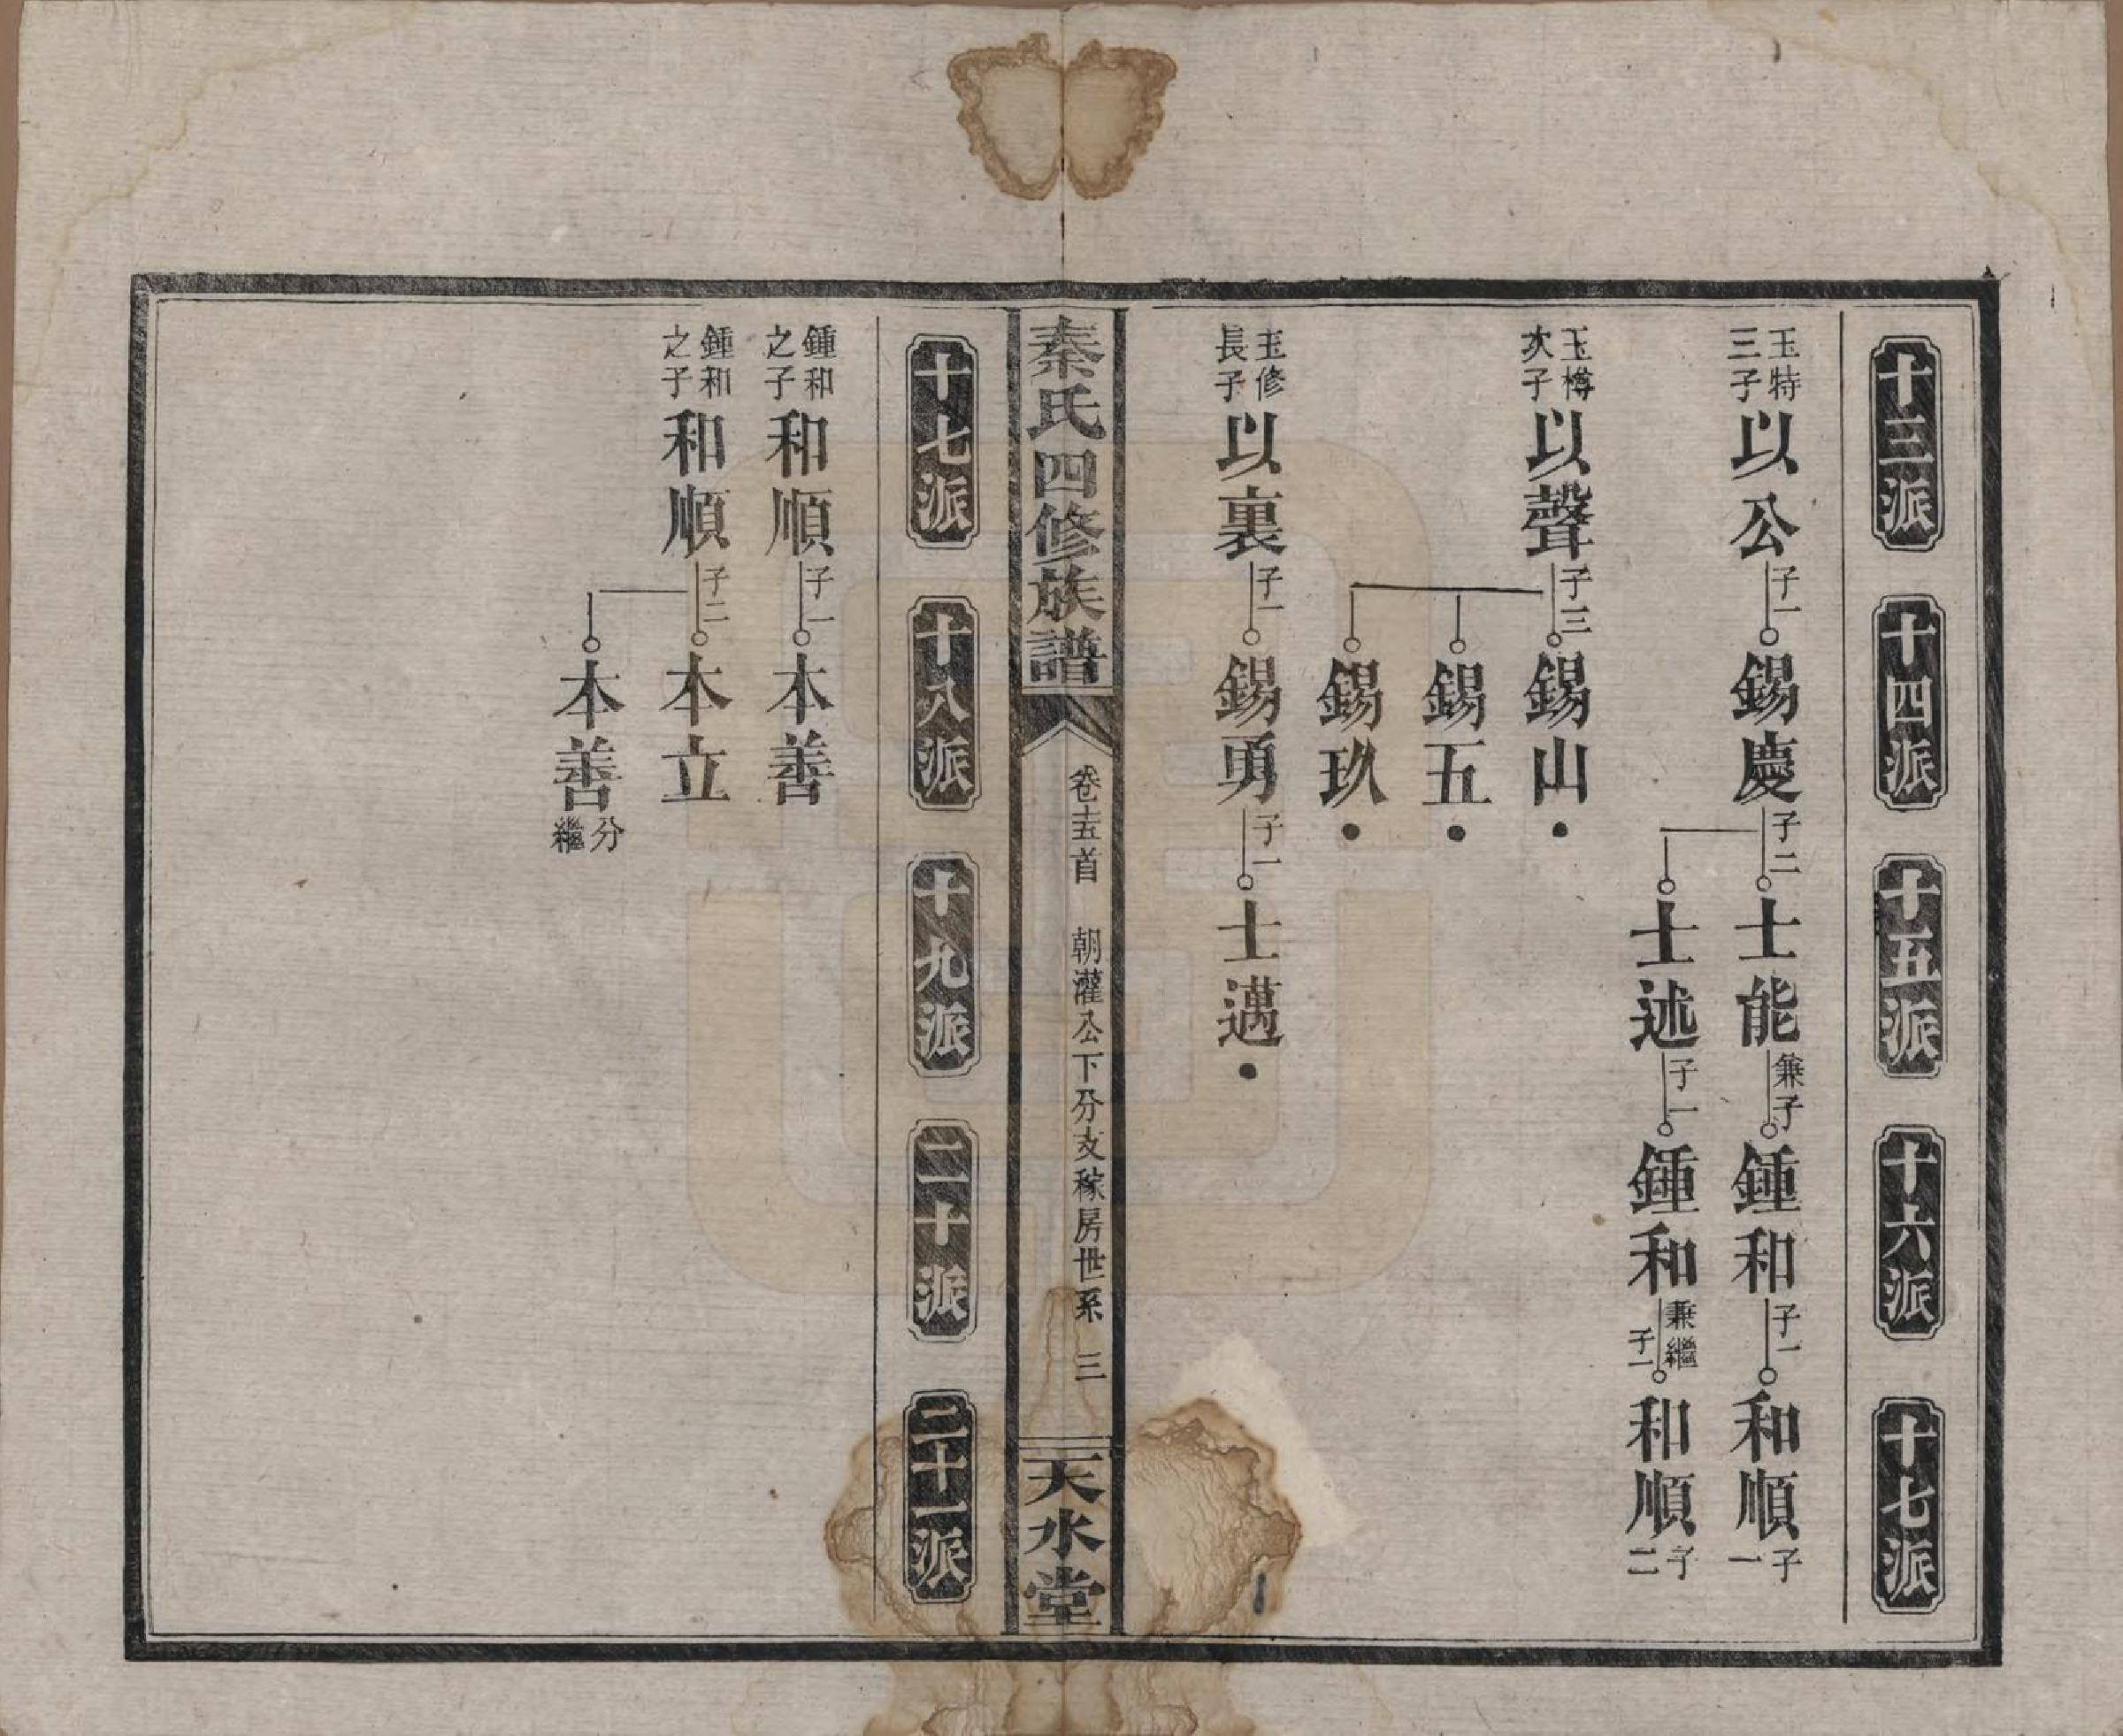 十三派
十四派
十五派
十六派
十七派
玉特三子以公子一錫慶子二士能兼子鍾和子一和順子一
士述子一鍾和兼繼子一和順子二
玉樽次子以聲子三錫山
錫五
錫玖
玉修長子以裏子一錫勇子一士邁
秦氏四修族譜
卷十五首 朝灌公下分支稼房世系 三
天水堂
十七派
十八派
十九派
二十派
二十一派
鍾和之子和順子一本善
鍾和之子和順子二本立
本善分繼